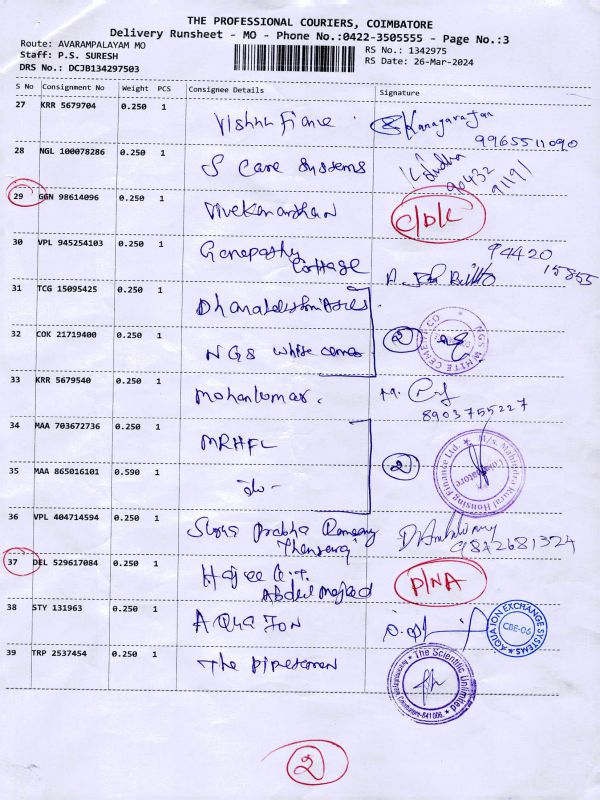 THE PROFESSIONAL COURIERS, COIMBATORE
Delivery Runsheet - MO - Phone No.:0422-3505555 - Page No.:3
Route: AVARAMPALAYAM MO
Staff: P.S. SURESH
DRS No.: DCJB134297503
RS No.: 1342975
RS Date: 26-Mar-2024
S No Consignment No Weight PCS Consignee Details Signature
27 KRR 5679704 0.250 1 Kanagarajan
9965511090
28 NGL 100078286 0.250 1 S Care Systems
90432
91191
29 GGN 98614096 0.250 1 Vivekanandhan C/D/L
30 VPL 945254103 0.250 1 Ganapathy
Cottage
94420
15855
31 TCG 15095425 0.250 1
32 COK 21719400 0.250 1 NGS white cement 2
NGS WHITE CEMENT CO
33 KRR 5679540 0.250 1 Mohankumar.
8903755227
34 MAA 703672736 0.250 1 MRHFL
35 MAA 865016101 0.590 1 -do- 2
M/s. Mahindra Rural Housing Finance Ltd.
Coimbatore
36 VPL 404714594 0.250 1 Surya Prabha
9842681324
37 DEL 529617084 0.250 1 Hajee
Abdul Majeed
P/NA
38 STY 131963 0.250 1 AQUA ION
AQUAION EXCHANGE SYSTEMS
CBE-06
39 TRP 2537454 0.250 1 The
The Scientific Unlimited
Coimbatore-641 006.
2